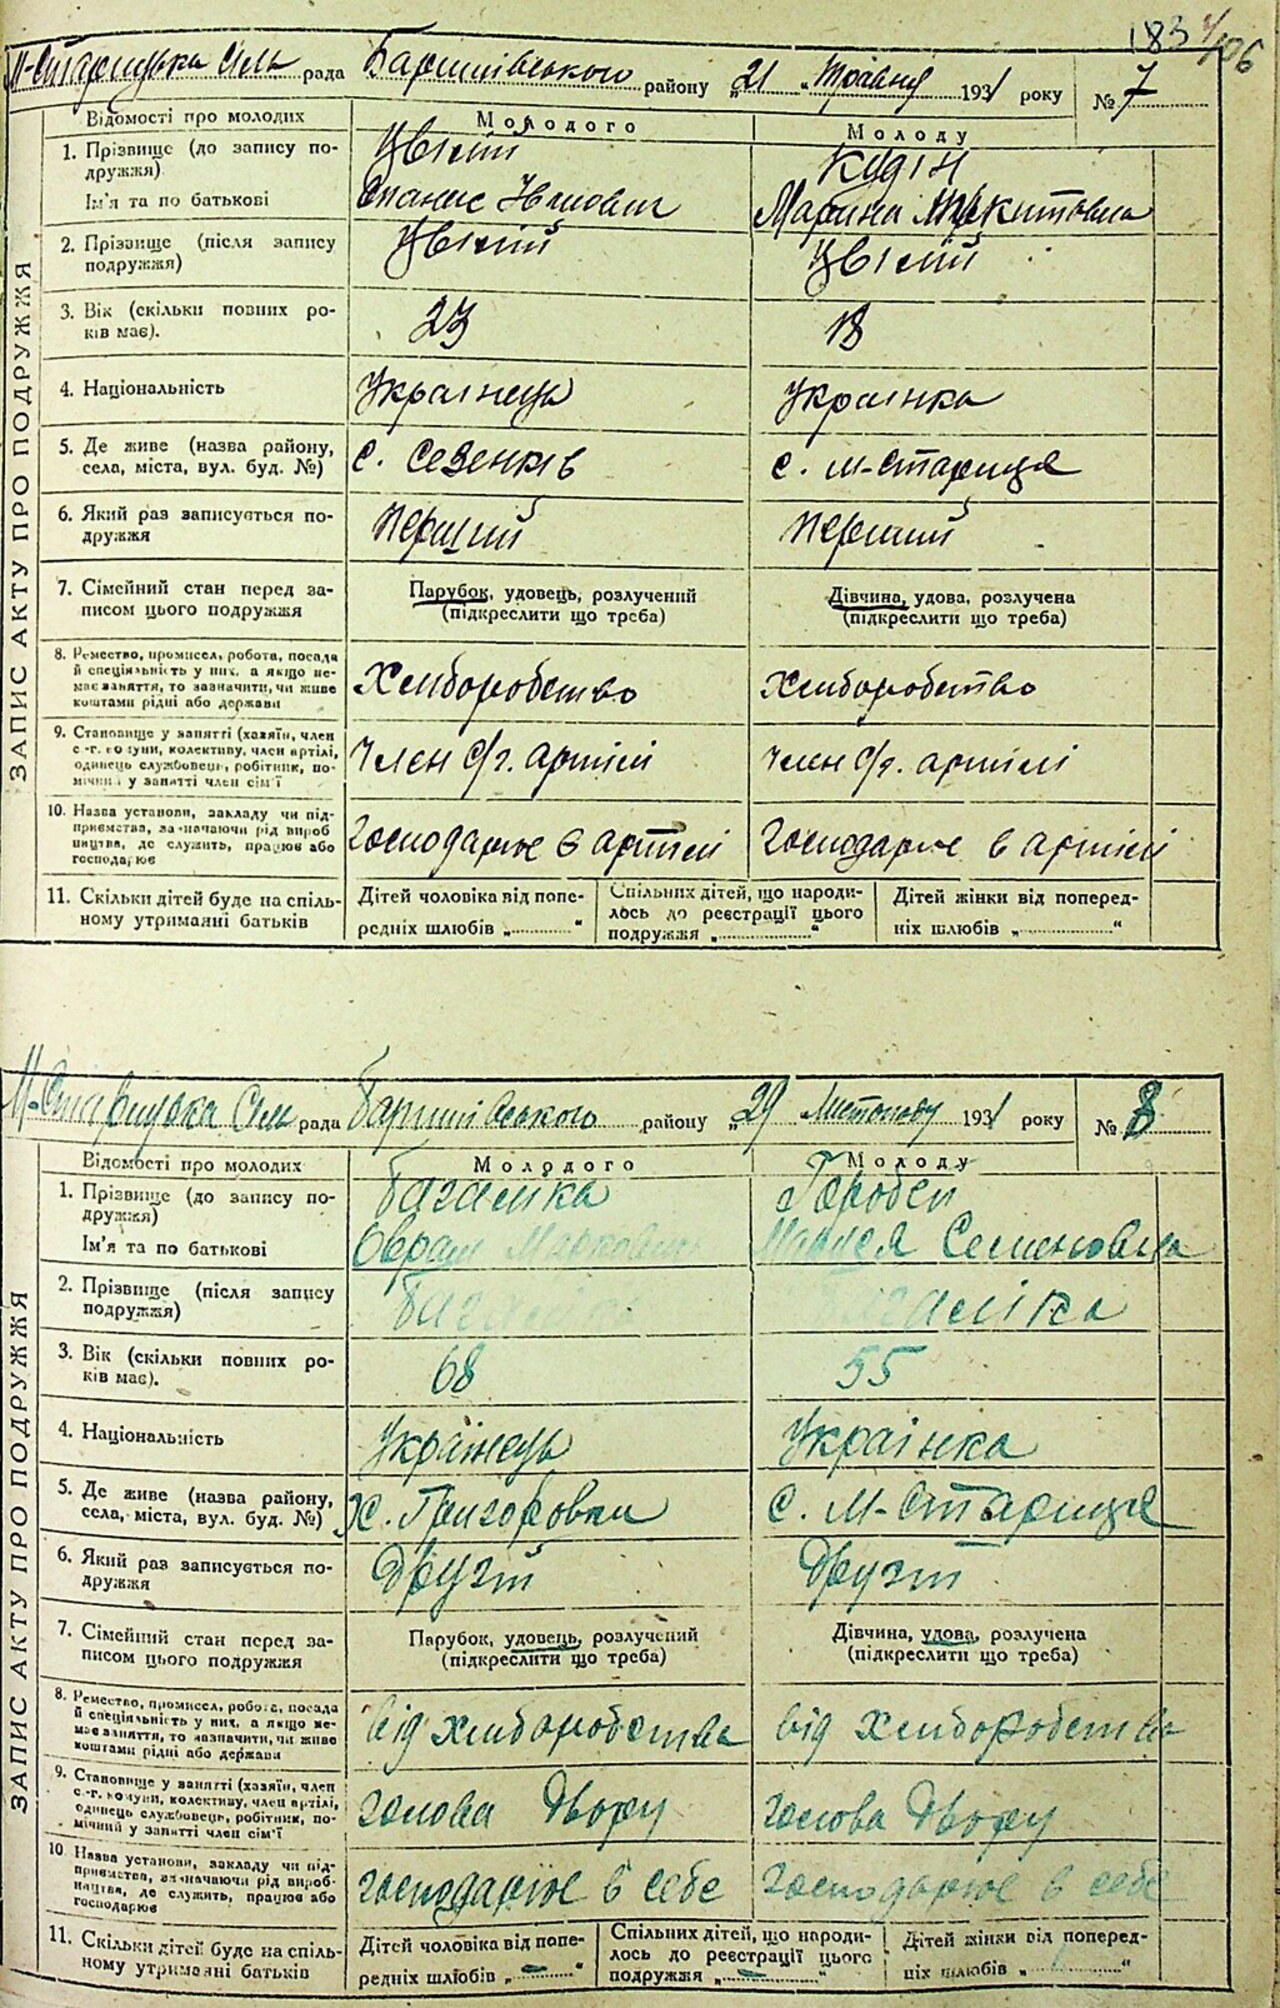 183
М-Старицька Сіль рада Баришівського району „21 „ Травня 1931 року № 7
Відомості про молодих
Молодого
Молоду
ЗАПИС АКТУ ПРО ПОДРУЖЖЯ
1. Прізвище (до запису по-
дружжя)
Ім'я та по батькові
Марина Микитовна
2. Прізвище (після запису
подружжя)
3. Вік (скільки повних ро-
ків має).
23
18
4. Національність
Українець
Українка
5. Де живе (назва району,
села, міста, вул. буд. №)
с. Сезенків
с. М-Стариця
6. Який раз записується по-
дружжя
перший
перший
7. Сімейний стан перед за-
писом цього подружжя
Парубок, удовець, розлучений
(підкреслити що треба)
Дівчина, удова, розлучена
(підкреслити що треба)
8. Ремество, промисел, робота, посада
й спеціяльність у них, а якщо не-
має заняття, то зазначити, чи живе
коштами рідні або держави
Хліборобство
Хліборобство
9. Становище у занятті (хазяїн, член
с.-г. комуни, колективу, член артілі,
одинець службовець, робітник, по-
мічний у занятті член сім'ї
Член С/г. артілі
Член С/г. артілі
10. Назва установи, закладу чи під-
приємства, зазначаючи рід вироб
ництва, де служить, працює або
господарює
Господарює в артілі
Господарює в артілі
11. Скільки дітей буде на спіль-
ному утриманні батьків
Дітей чоловіка від попе-
редніх шлюбів „ “
Спільних дітей, що народи-
лось до реєстрації цього
подружжя „ “
Дітей жінки від поперед-
ніх шлюбів „ “
М-Старицька Сіль рада Баришівського району „29 Листопаду 1931 року № 8
Відомості про молодих
Молодого
Молоду
ЗАПИС АКТУ ПРО ПОДРУЖЖЯ
1. Прізвище (до запису по-
дружжя)
Багаліка
Горобей
Ім'я та по батькові
Оврам Маркович
Маруся Семеновна
2. Прізвище (після запису
подружжя)
Багаліка
Багаліка
3. Вік (скільки повних ро-
ків має).
68
55
4. Національність
Українець
Українка
5. Де живе (назва району,
села, міста, вул. буд. №)
х. Григоровки
с. М-Стариця
6. Який раз записується по-
дружжя
Другій
Другій
7. Сімейний стан перед за-
писом цього подружжя
Парубок, удовець, розлучений
(підкреслити що треба)
Дівчина, удова, розлучена
(підкреслити що треба)
8. Ремество, промисел, робота, посада
й спеціяльність у них, а якщо не-
має заняття, то зазначити, чи живе
коштами рідні або держави
від Хліборобства
від Хліборобства
9. Становище у занятті (хазяїн, член
с.-г. комуни, колективу, член артілі,
одинець службовець, робітник, по-
мічний у занятті член сім'ї
голова Двору
голова Двору
10. Назва установи, закладу чи під-
приємства, зазначаючи рід вироб-
ництва, де служить, працює або
господарює
господарює в себе
господарює в себе
11. Скільки дітей буде на спіль-
ному утриманні батьків
Дітей чоловіка від попе-
редніх шлюбів „ — “
Спільних дітей, що народи-
лось до реєстрації цього
подружжя „ — “
Дітей жінки від поперед-
ніх шлюбів „ “